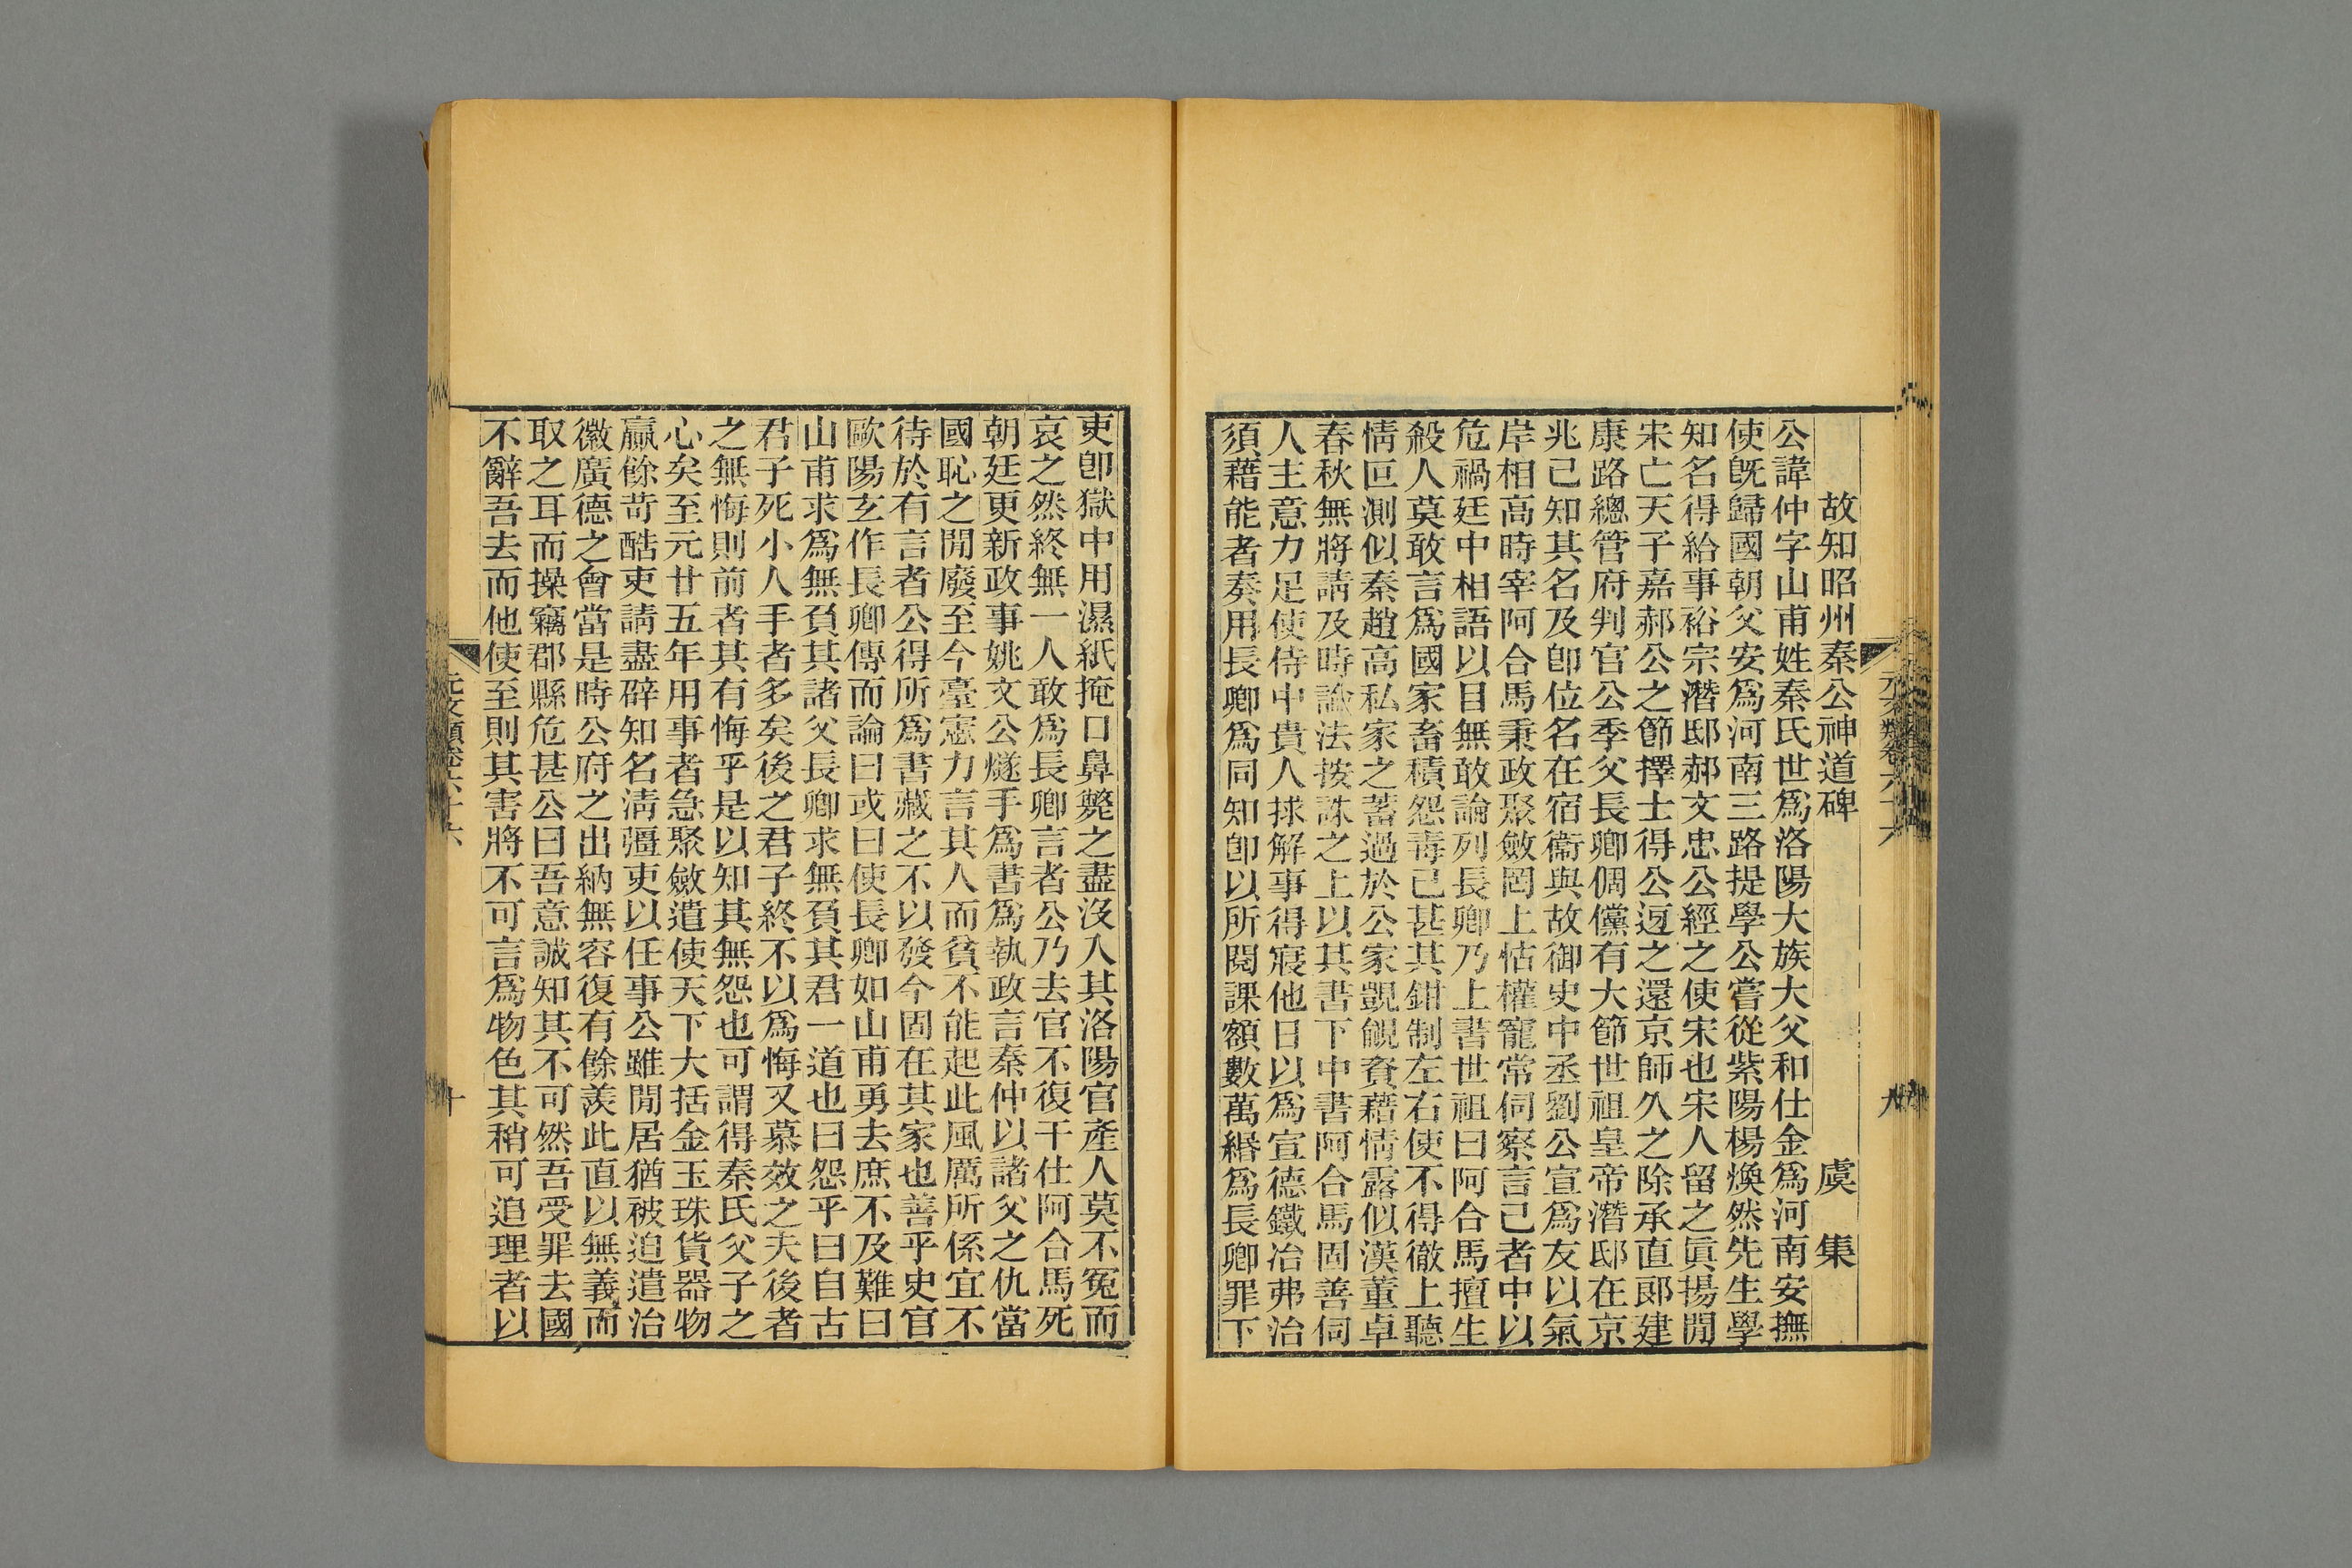 故知昭州秦公神道碑　虞　集
公諱仲字山甫姓秦氏世爲洛陽大族大父和仕金爲河南安撫
使旣歸國朝父安爲河南三路提學公嘗從紫陽楊煥然先生學
知名得給事裕宗潛邸郝文忠公經之使宋也宋人留之眞揚閒
宋亡天子嘉郝公之節擇士得公迓之還京師久之除承直郞建
康路總管府判官公季父長卿倜儻有大節世祖皇帝潛邸在京
兆已知其名及卽位名在宿衞與故御史中丞劉公宣爲友以氣
岸相高時宰阿合馬秉政聚斂罔上怙權寵常伺察言己者中以
危禍廷中相語以目無敢論列長卿乃上書世祖曰阿合馬擅生
殺人莫敢言爲國家畜積怨毒已甚其鉗制左右使不得徹上聽
情叵測似秦趙高私家之蓄過於公家覬覦資藉情露似漢董卓
春秋無將請及時論法按誅之上以其書下中書阿合馬固善伺
人主意力足使侍中貴人捄解事得寢他日以爲宣德鐵冶弗治
須藉能者奏用長卿爲同知卽以所閱課額數萬緡爲長卿罪下
吏卽獄中用濕紙掩口鼻斃之盡沒入其洛陽官產人莫不冤而
哀之然終無一人敢爲長卿言者公乃去官不復干仕阿合馬死
朝廷更新政事姚文公燧手爲書爲執政言秦仲以諸父之仇當
國恥之閒廢至今臺憲力言其人而貧不能起此風厲所係宜不
待於有言者公得所爲書藏之不以發今固在其家也善乎史官
歐陽玄作長卿傳而論曰或曰使長卿如山甫勇去庶不及難曰
山甫求爲無負其諸父長卿求無負其君一道也曰怨乎曰自古
君子死小人手者多矣後之君子終不以爲悔又慕效之夫後者
之無悔則前者其有悔乎是以知其無怨也可謂得秦氏父子之
心矣至元廿五年用事者急聚斂遣使天下大括金玉珠貨器物
贏餘苛酷吏請盡辟知名淸彊吏以任事公雖閒居猶被迫遣治
徽廣德之會當是時公府之出納無容復有餘羨此直以無義而
取之耳而操竊郡縣危甚公曰吾意誠知其不可然吾受罪去國
不辭吾去而他使至則其害將不可言爲物色其稍可追理者以
元文類卷六十六
十